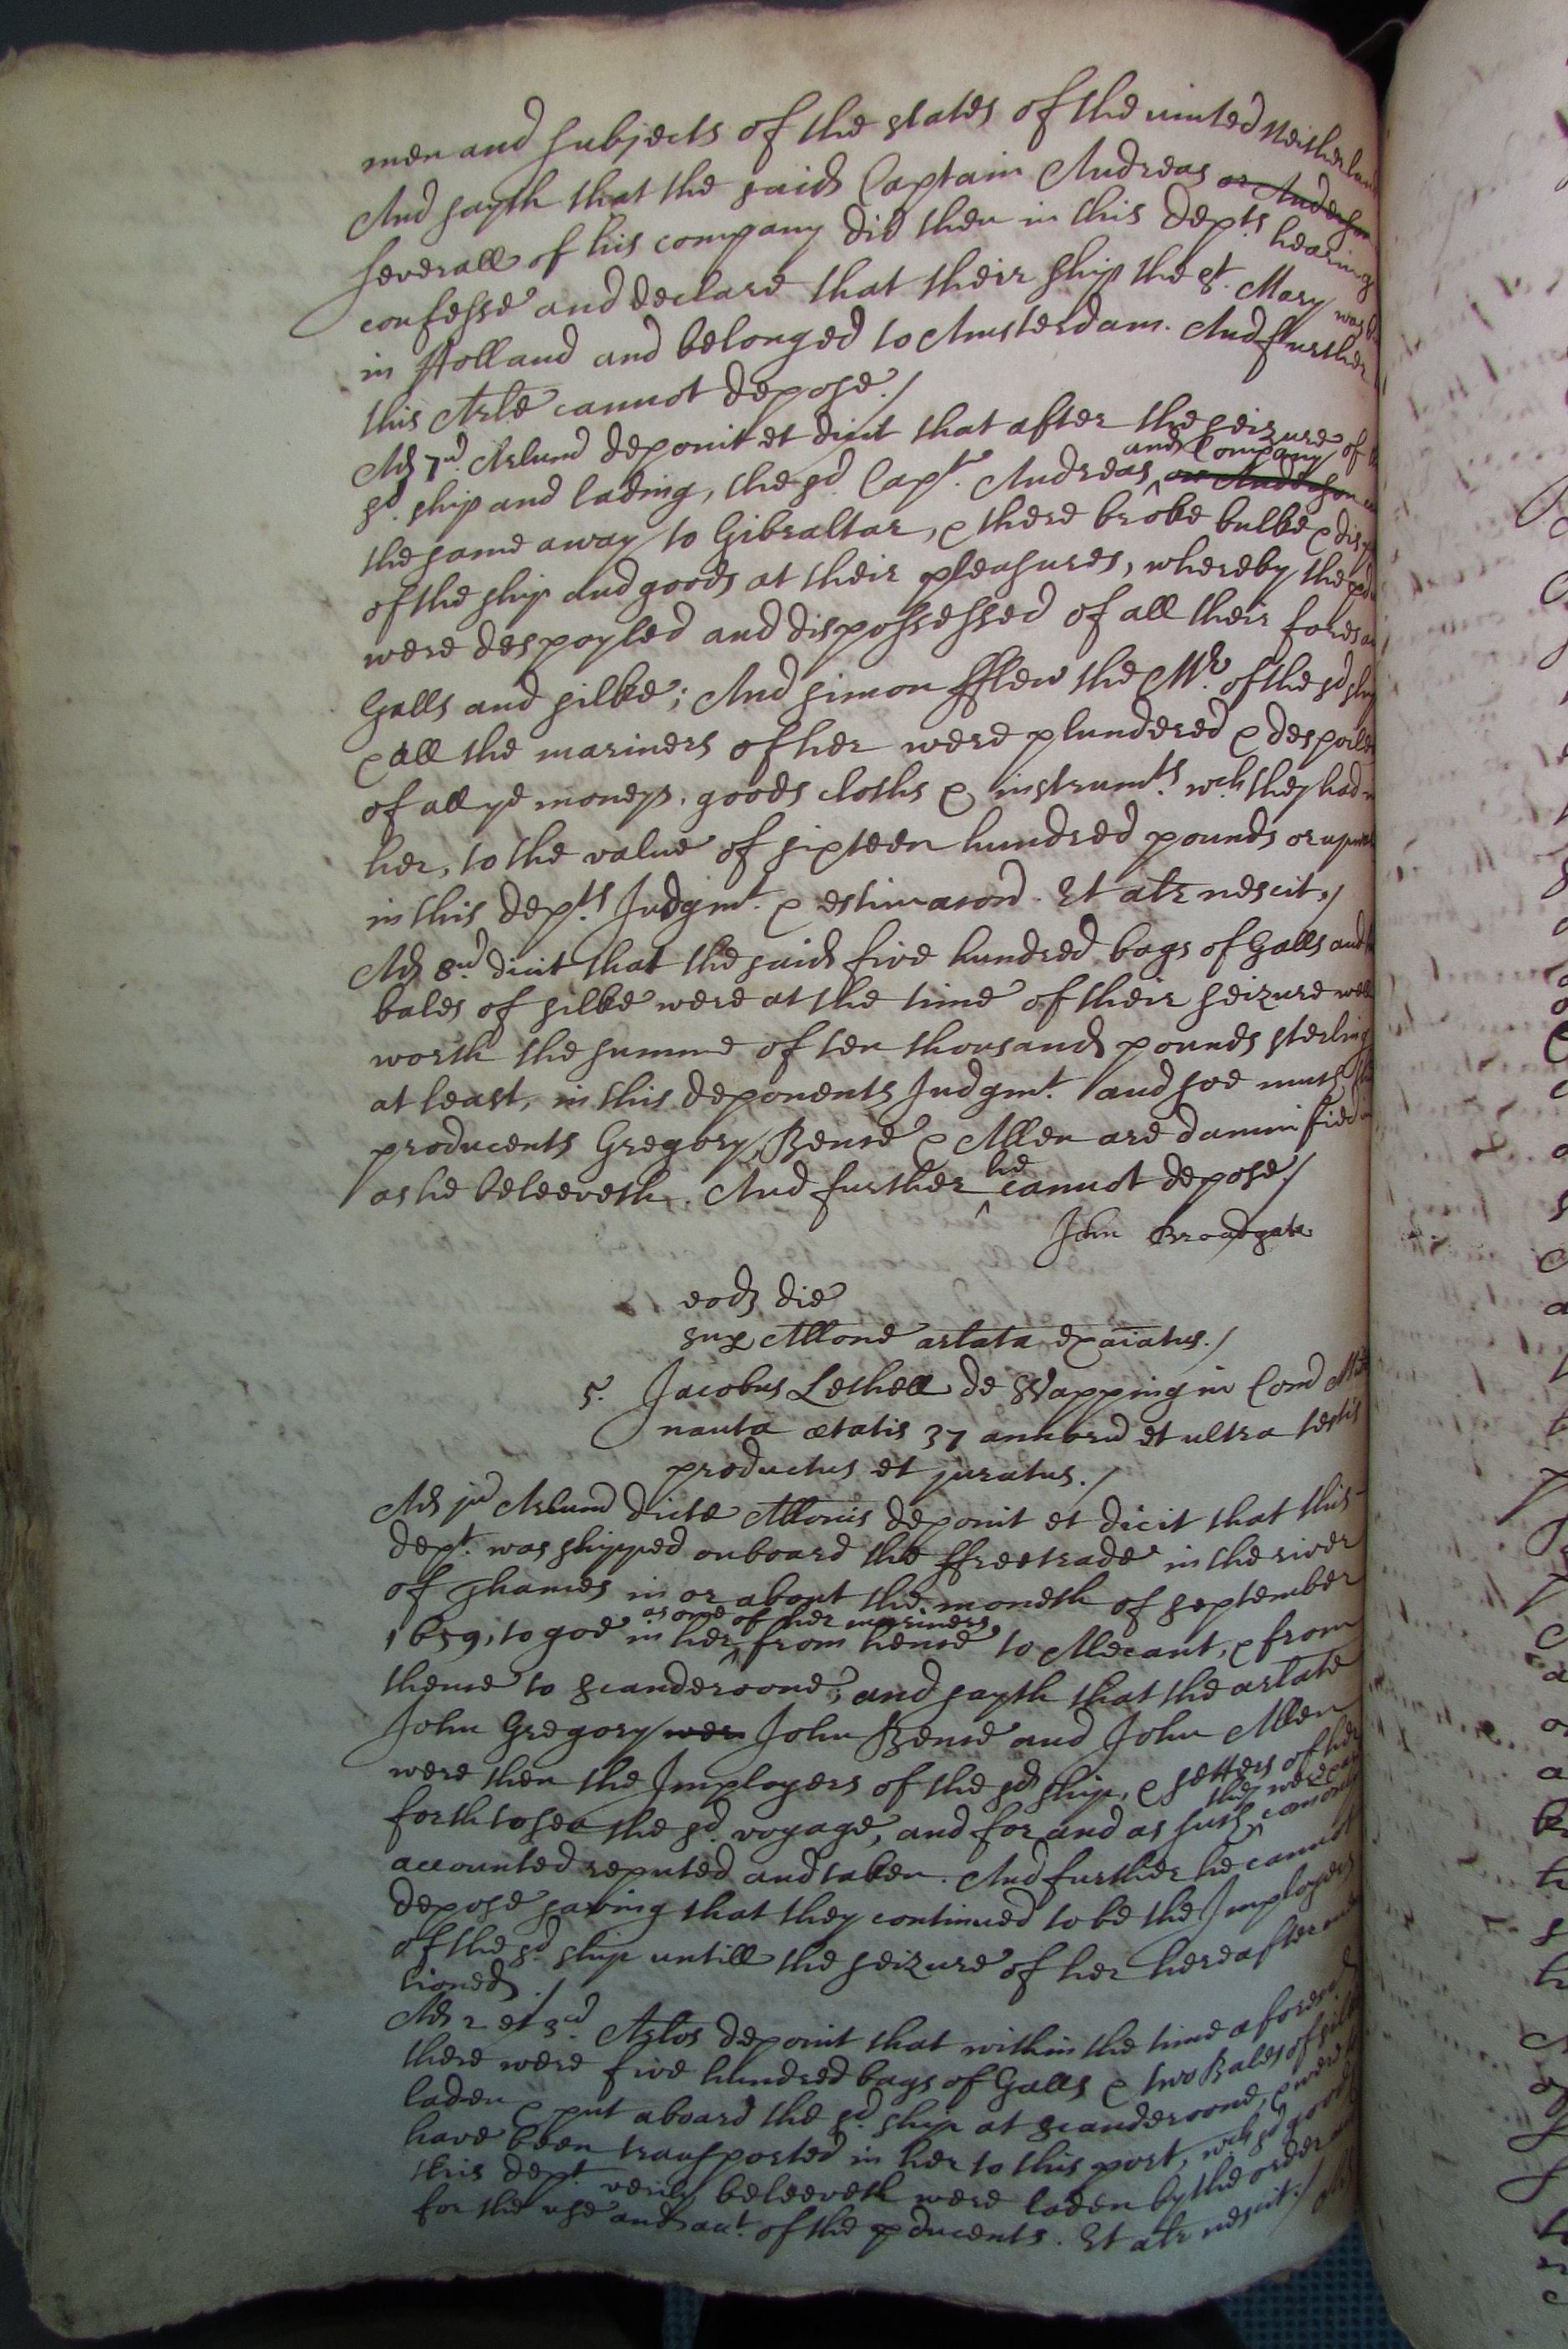 men and subjects of the states of the united Neitherland
And sayth that the said Captain Andreas or Anderson
severall of his company did then in this dep.ts hearing
confesse and declare that their ship the S.t Mary was
in Holland and belonged to Amsterdam. And further
this Arle cannot depose./
Ad 7.um Arlum deponit et dicit that after the seizure of
s.d ship and lading, the s.d Cap.t Andreas and Company or Anderson
the same away to Gibraltar, & there broke bulke &
of the ship and goods at their pleasures, whereby the
were despoyled and dispossessed of all their
Galls and silke; And Simon fflew the M.r of the s.d ship
& all the mariners of her were plundered & despoiled
of all ye moneys, goods cloths & instrum.ts w.ch they had
her, to the value of sixteen hundred pounds or
in this dep.ts Judgm.t & estimacon. Et alr nescit./
Ad 8.um dicit that the said five hundred bags of Galls and
bales of silke were at the time of their seizure well
worth the summe of ten thousand pounds sterling
at least, in this deponents Judgm.t and soe much
producents Gregory, Bence & Allen are damnified
as he beleeveth. And further he cannot depose./
John Broadgate
eod die
sup Allone arlata exaiatus./
5. Jacobus Lethell de Wapping in Com
nauta ætatis 37 annorum et ultra testis
productus et juratus./
Ad jum Arlum dicte Allonis deponit et dicit that this
dep.t was shipped onboard the ffreetrade in the river
of Thames in or about the moneth of September
1659, to goe in her as one of her mariners from hence to Allecant, & from
thence to Scanderoone, and sayth that the arlate
John Gregory wer John Bence and John Allen
were then the Imployers of the sd ship, & setters of her
forth to sea the s.d voyage, and for and as such they were comonly
accounted reputed and taken. And further he cannot
depose saving that they continued to be the Imployers
of the s.d ship untill the seizure of her hereafter
tioned./
Ad 2 et 3.um Arlos deponit that within the time aforesd
there were five hundred bags of Galls & two Bales of silke
laden & put aboard the s.d ship at Scanderoone, & were
have been transported in her to this port, w.ch s.d goods
this dep.t verily beleeveth were laden by the order
for the use and acc.t of the pducents. Et alr nescit./